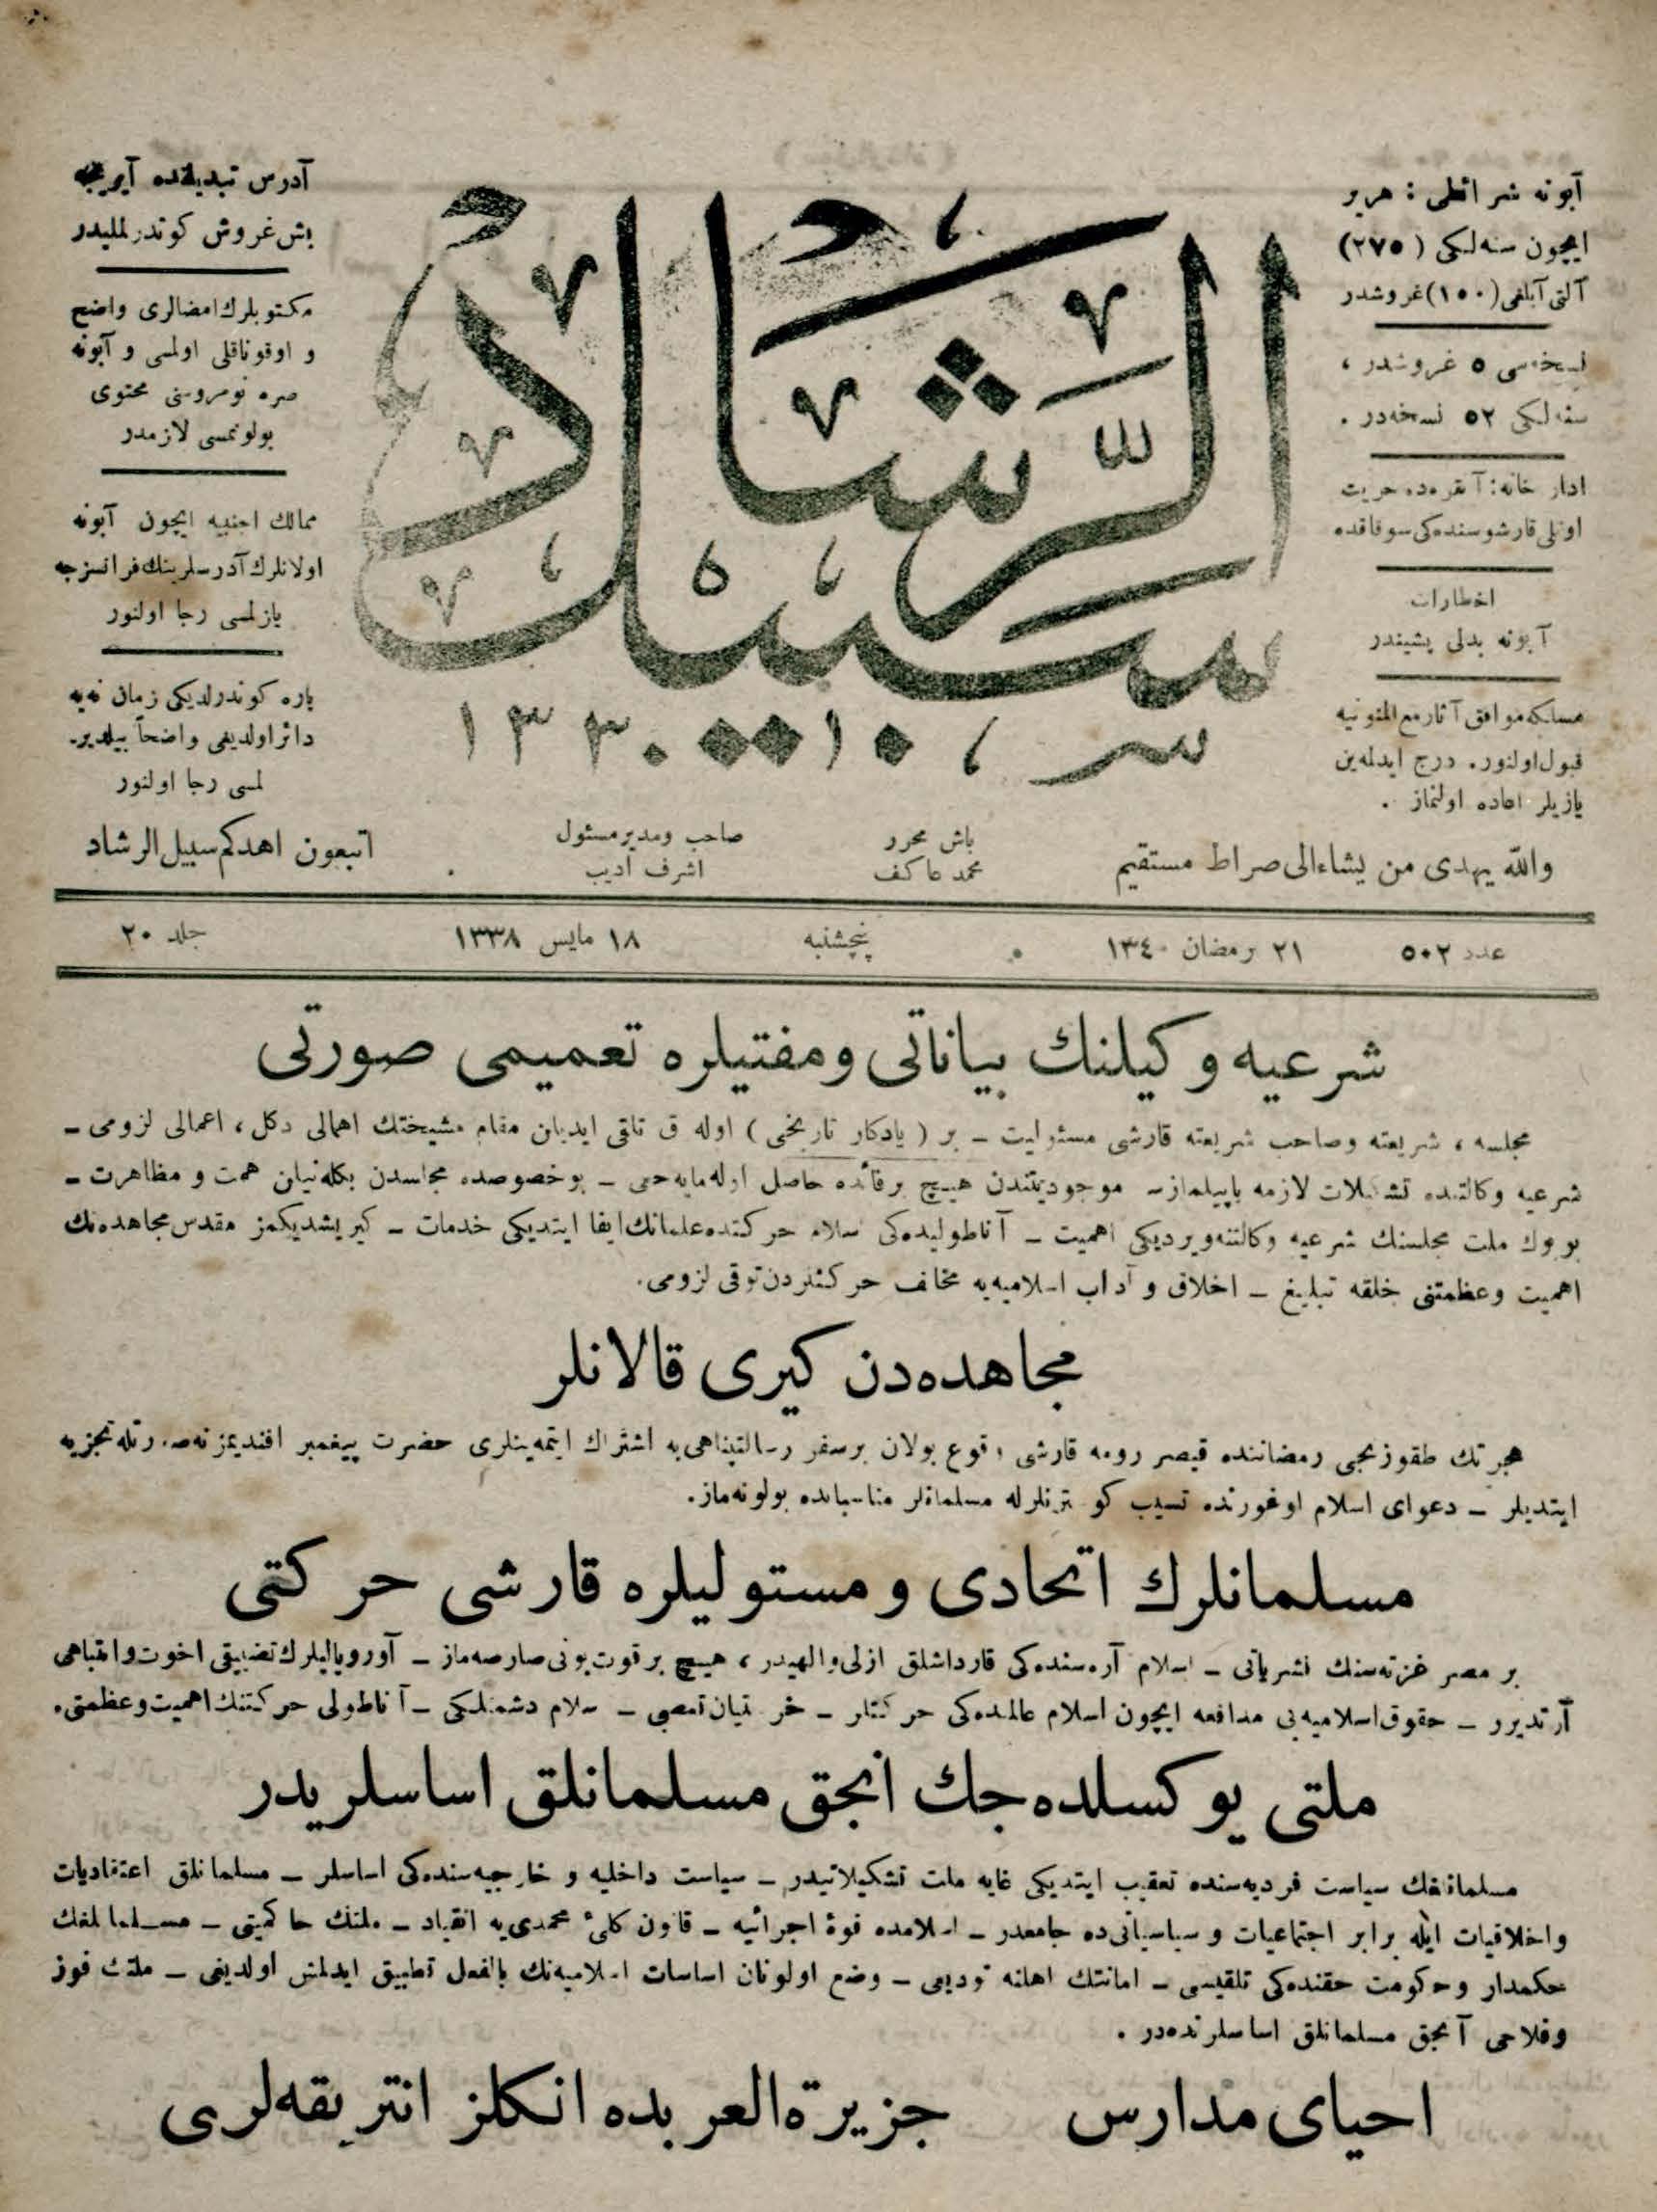 آبونه شرائطی : هر یر
ایچون سنه‌لکی (۲۷۵)
آلتی آیلغی (۱۵۰) غروشدر
نسخه‌سی ۵ غروشدر ،
سنه‌لکی ۵۲ نسخه‌در .
اداره خانه : آنقره‌ده حریت
اوتلی قارشوسنده‌کی سوقاقده
اخطارات
آبونه بدلی پشیندر
مسلکه موافق آثار مع الممنونیه
قبول اولنور. درج ایدلمه‌ین
یازیلر اعاده اولنماز .
سبیل الرشاد
۱۳۳۰
آدرس تبدیلنده آیریجه
بش غروش کوندرلملیدر
مکتوبلرك امضالری واضح
و اوقوناقلی اولمسی و آبونه
صره نومروسنی محتوی
بولونمسی لازمدر
ممالك اجنبیه ایچون آبونه
اولانلرك آدرسلرینك فرانسزجه
یازلمسی رجا اولنور
پاره کوندرلدیکی زمان نه‌یه
دائر اولدیغی واضحاً بیلدیر-
لمسی رجا اولنور
والله یهدی من یشاء الی صراط مستقیم
باش محرر
محمد عاکف
صاحب ومدیر مسئول
اشرف ادیب
اتبعون اهدکم سبیل الرشاد
عدد ۵۰۲
۲۱ رمضان ۱۳٤۰
پنچشنبه
۱۸ مایس ۱۳۳۸
جلد ۲۰
شرعیه وکیلنك بیاناتی ومفتیلره تعمیمی صورتی
مجلسه ، شریعته وصاحب شریعته قارشی مسئولیت ـ بر ( یادکار تاریخی ) اوله‌رق تلقی ایدیلن مقام مشیختك اهمالی دکل ، اعمالی لزومی ـ
شرعیه وکالتنده تشکیلات لازمه یاپیلمازسه موجودیتندن هیچ بر فائده حاصل اوله‌مایه‌جغی ـ بو خصوصده مجلسدن بکله‌نیلن همت و مظاهرت ـ
بویوك ملت مجلسنك شرعیه وکالتنه ویردیکی اهمیت ـ آناطولیده‌کی اسلام حرکتنده علمانك ایفا ایتدیکی خدمات ـ کیریشدیکمز مقدس مجاهده‌نك
اهمیت وعظمتنی خلقه تبلیغ ـ اخلاق و آداب اسلامیه‌یه مخالف حرکتلردن توقی لزومی.
مجاهده‌دن کیری قالانلر
هجرتك طقوزنجی رمضاننده قیصر رومه قارشی وقوع بولان بر سفر رسالتپناهی‌یه اشتراك ایتمه‌ینلری حضرت پیغمبر افندیمز نه صورتله تجزیه
ایتدیلر ـ دعوای اسلام اوغورنده تسیب کوسترنلرله مسلمانلر مناسباتده بولونه‌ماز.
مسلمانلرك اتحادی و مستولیلره قارشی حرکتی
بر مصر غزته‌سنك نشریاتی ـ اسلام آره‌سنده‌کی قارداشلق ازلی والهیدر ، هیچ بر قوت بونی صارصه‌ماز ـ آوروپالیلرك تضییقی اخوت وانتباهی
آرتدیرر ـ حقوق اسلامیه‌یی مدافعه ایچون اسلام عالمنده‌کی حرکتلر ـ خرستیان تعصبی ـ اسلام دشمنلکی ـ آناطولی حرکتنك اهمیت وعظمتی.
ملتی یوکسلده‌جك انجق مسلمانلق اساسلریدر
مسلمانلغك سیاست فردیه‌سنده تعقیب ایتدیکی غایه ملت تشکیلاتیدر ـ سیاست داخلیه و خارجیه‌سنده‌کی اساسلر ـ مسلمانلق اعتقادیات
واخلاقیات ایله برابر اجتماعیات و سیاسیاتی ده جامعدر ـ اسلامده قوهٔ اجرائیه ـ قانون کلیٔ محمدی‌یه انقیاد ـ ملتك حاکمیتی ـ مسلمانلغك
حکمدار وحکومت حقنده‌کی تلقیسی ـ امانتك اهلنه تودیعی ـ وضع اولونان اساسات اسلامیه‌نك بالفعل تطبیق ایدلمش اولدیغی ـ ملتك فوز
وفلاحی آنجق مسلمانلق اساسلرنده‌در .
احیای مدارس
جزیرةالعربده انکلز انتریقه‌لری